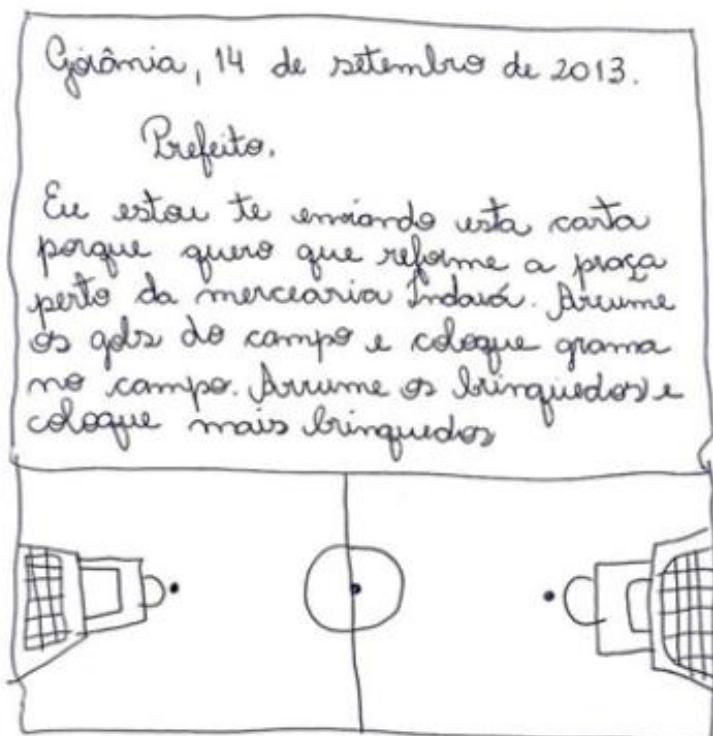 Goiânia, 14 de setembro de 2013.
Prefeito.
Eu estou te enviando esta carta
porque quero que reforme a praça
perto da mercearia Indaiá. Arrume
os gols do campo e coloque grama
no campo. Arrume os brinquedos e
coloque mais brinquedos